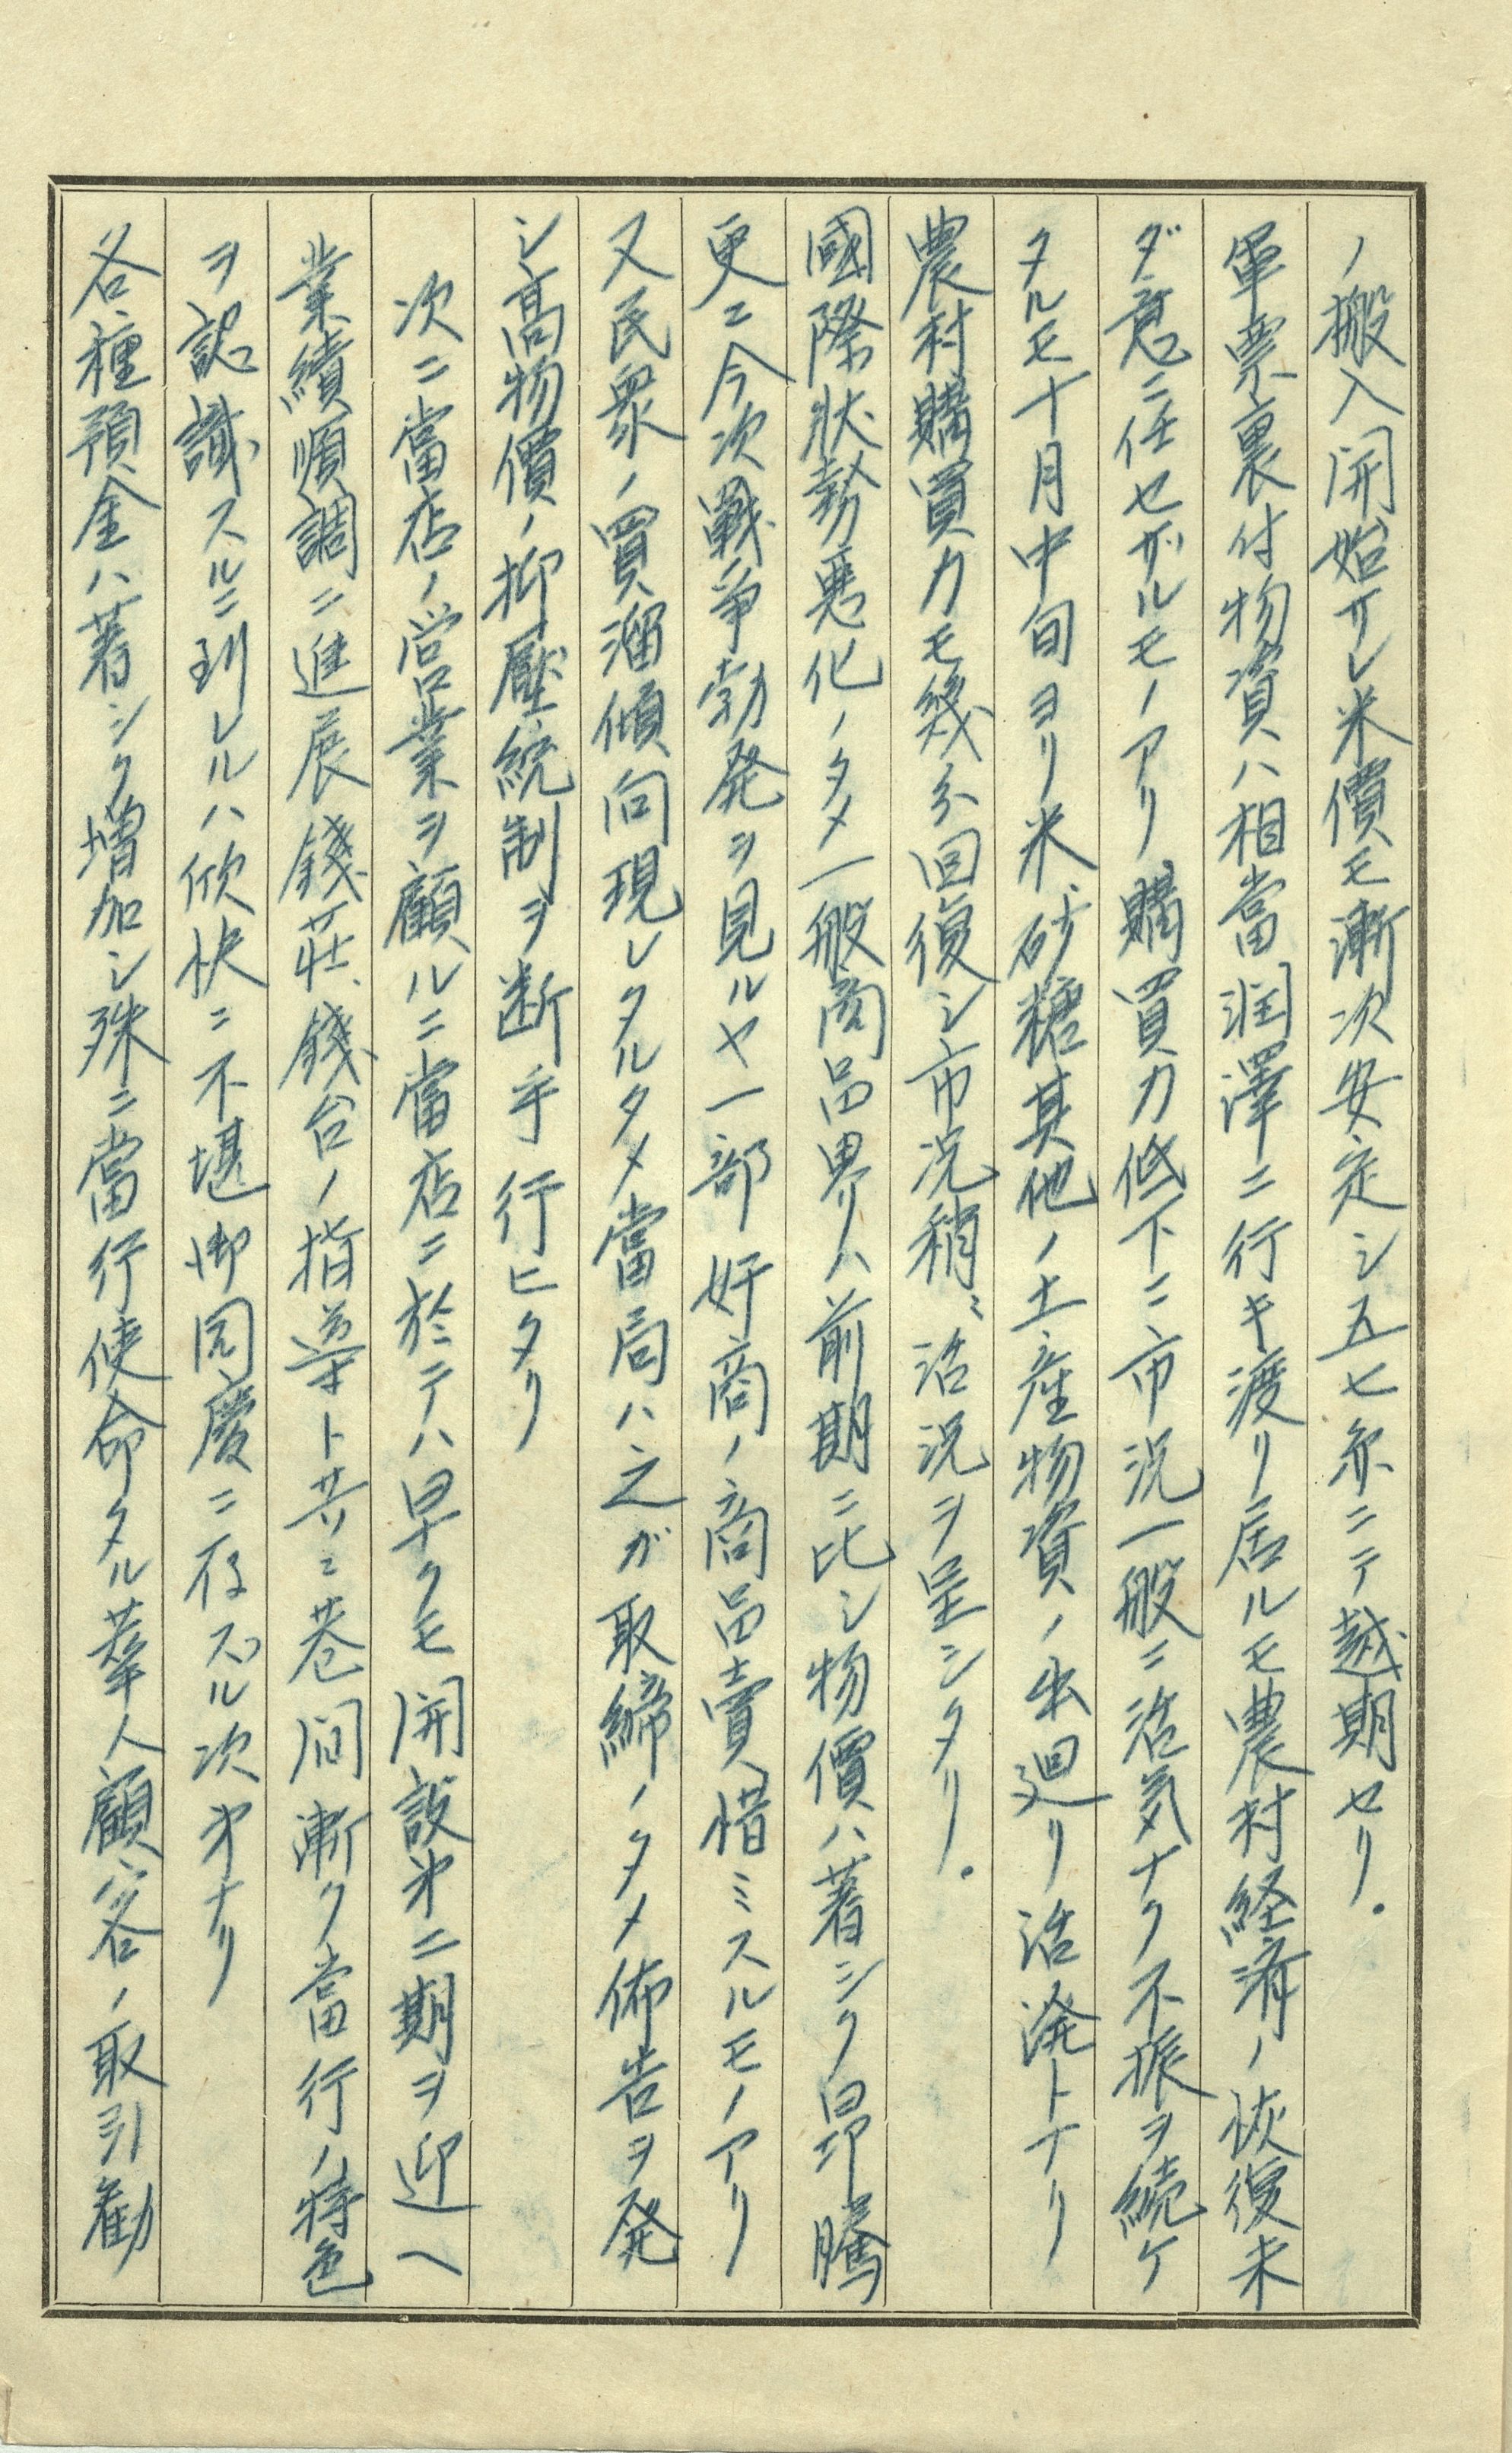 ノ搬入開始サレ米價モ漸次安定シ五七弗ニテ越期セリ.
軍票裏付物資ハ相當潤澤ニ行キ渡リ居ルモ農村経済ノ恢復未
ダ意ニ任セザルモノアリ購買力低下ニ市況一般ニ活気ナク不振ヲ続ケ
タルモ十月中旬ヨリ米砂糖其他ノ土産物資ノ出廻リ活溌トナリ
農村購買力モ幾分回復シ市況稍〻活況ヲ呈シタリ.
國際狀勢悪化ノタメ一般商品界ハ前期ニ比シ物價ハ著シク昂騰
更ニ今次戰争勃発ヲ見ルヤ一部奸商ノ商品賣惜ミスルモノアリ
又民衆ノ買溜傾向現レタルタメ當局ハ之ガ取締ノタメ佈告ヲ発
シ高物價ノ抑壓統制ヲ断乎行ヒタリ
次ニ當店ノ営業ヲ顧ルニ當店ニ於テハ早クモ開設第二期ヲ迎ヘ
業績順調ニ進展錢莊、錢台ノ指導ト共ニ巷間漸ク當行ノ特色
ヲ認識スルニ到レルハ欣快ニ不堪御同慶ニ存ズル次第ナリ
各種預金ハ著シク増加シ殊ニ當行使命タル華人顧客ノ取引勧